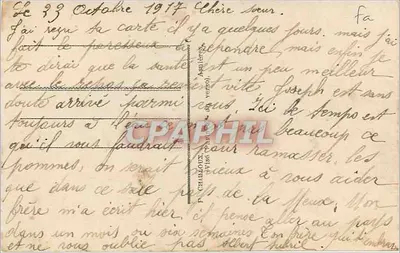 Le 23 Octobre 1917 Chère sœur
J'ai reçu ta carte il y a quelques jours. mais j'ai
fait le paresseux de répondre, mais enfin je
te dirai que la santé est un peu meilleur
avec le repos ça revient vite. Joseph est sans
doute arrivé parmi vous. Ici le temps est
toujours à l'eau pas beaucoup ce
qu'il vous faudrait pour ramasser les
pommes, on serait mieux à vous aider
que dans ce sale pays de la Meuse. Mon
frère m'a écrit hier, il pense aller au pays
dans un mois ou six semaines Ton frère qui t'embrasse
et ne vous oublie pas Albert
CPAPHIL